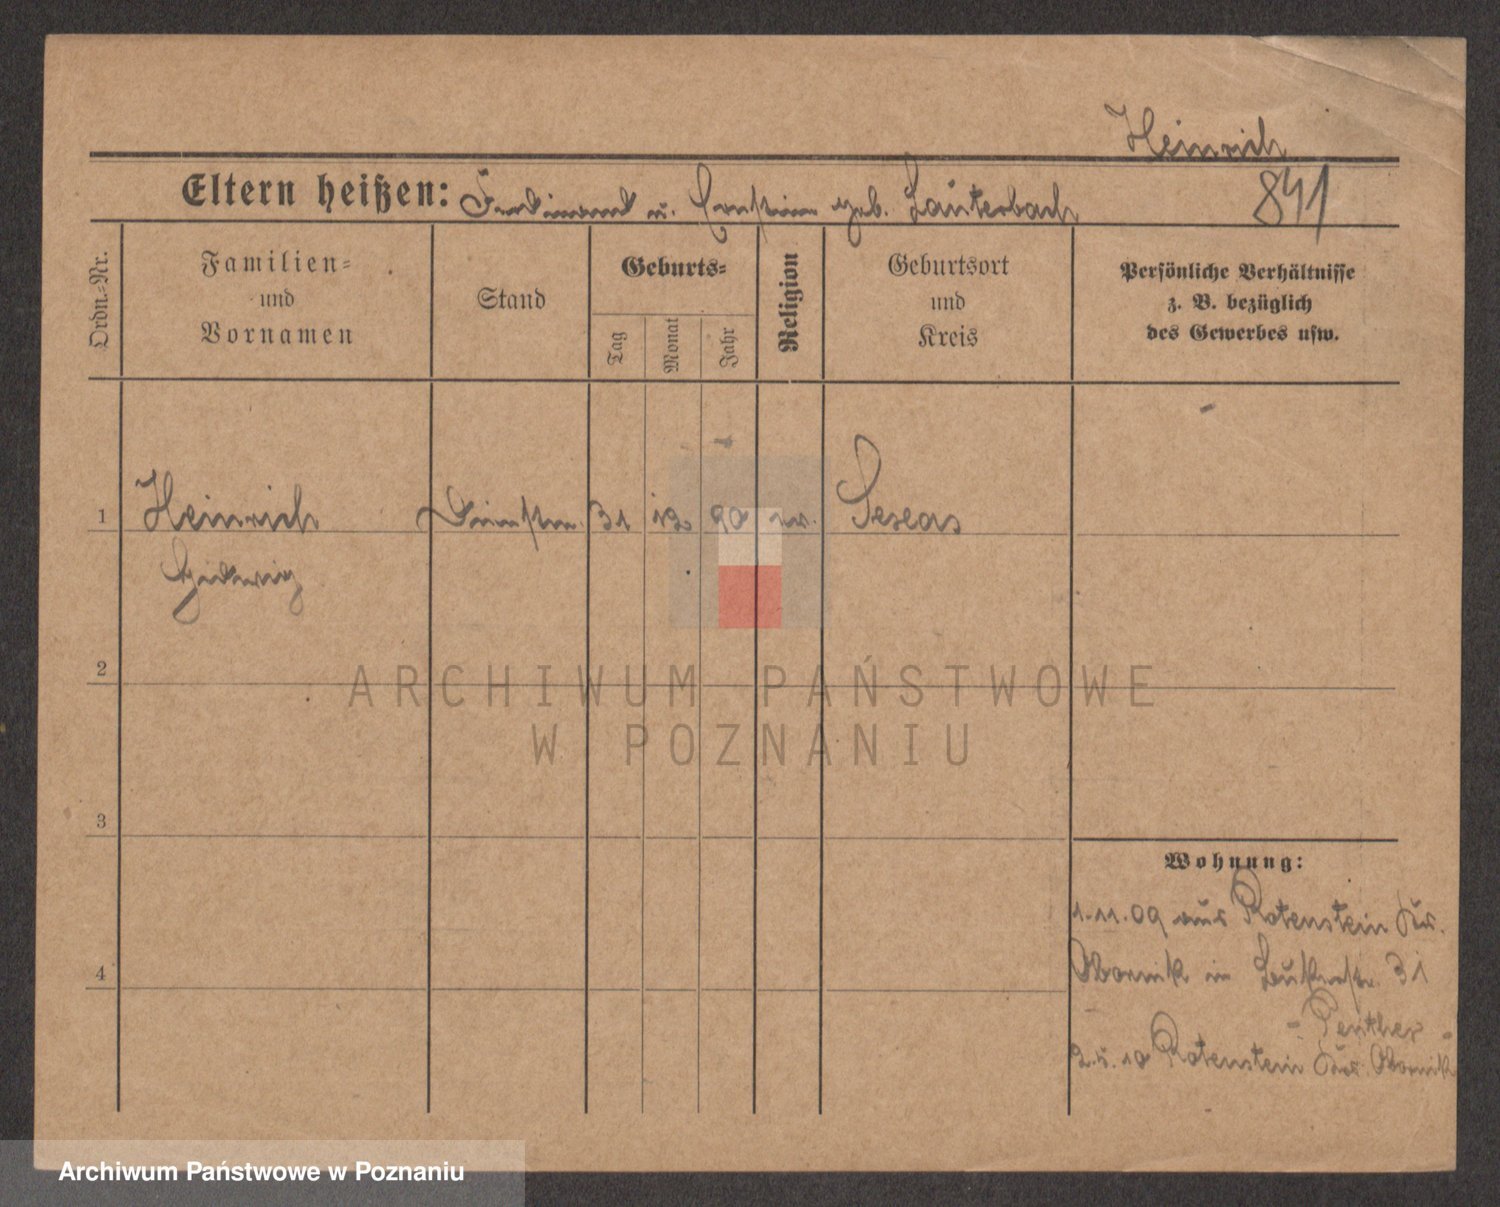 Heinrich
Eltern heißen: Ferdinand u. Ernstine geb. Lauterbach 841
Ordn.-Nr.
Familien-
und
Vornamen
Stand
Geburts-
Tag
Monat
Jahr
Religion
Geburtsort
und
Kreis
Persönliche Verhältnisse
z. B. bezüglich
des Gewerbes usw.
1 Heinrich 31 12 90 ev.
Hedwig
2
3
4
Wohnung:
1.11.09 aus Rotenstein Krs.
Obornik in 31
- Penther -
2.5.10 Rotenstein Krs. Obornik
ARCHIWUM PAŃSTWOWE
W POZNANIU
Archiwum Państwowe w Poznaniu